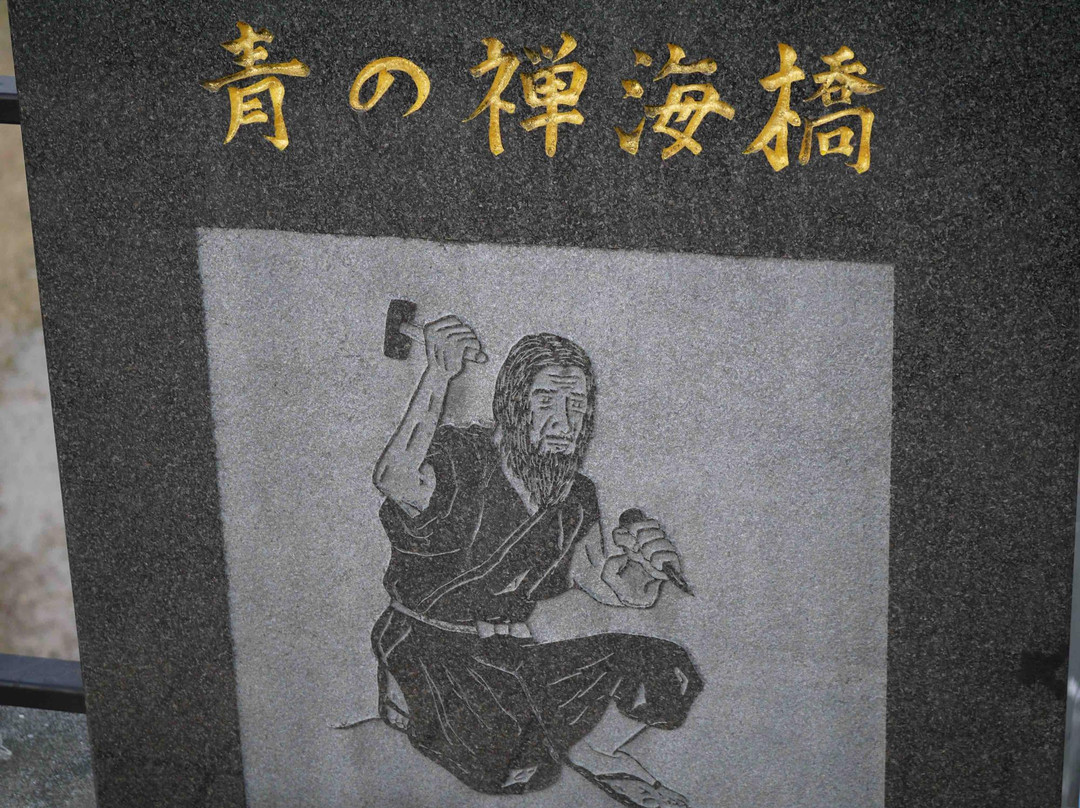 青の禅海橋